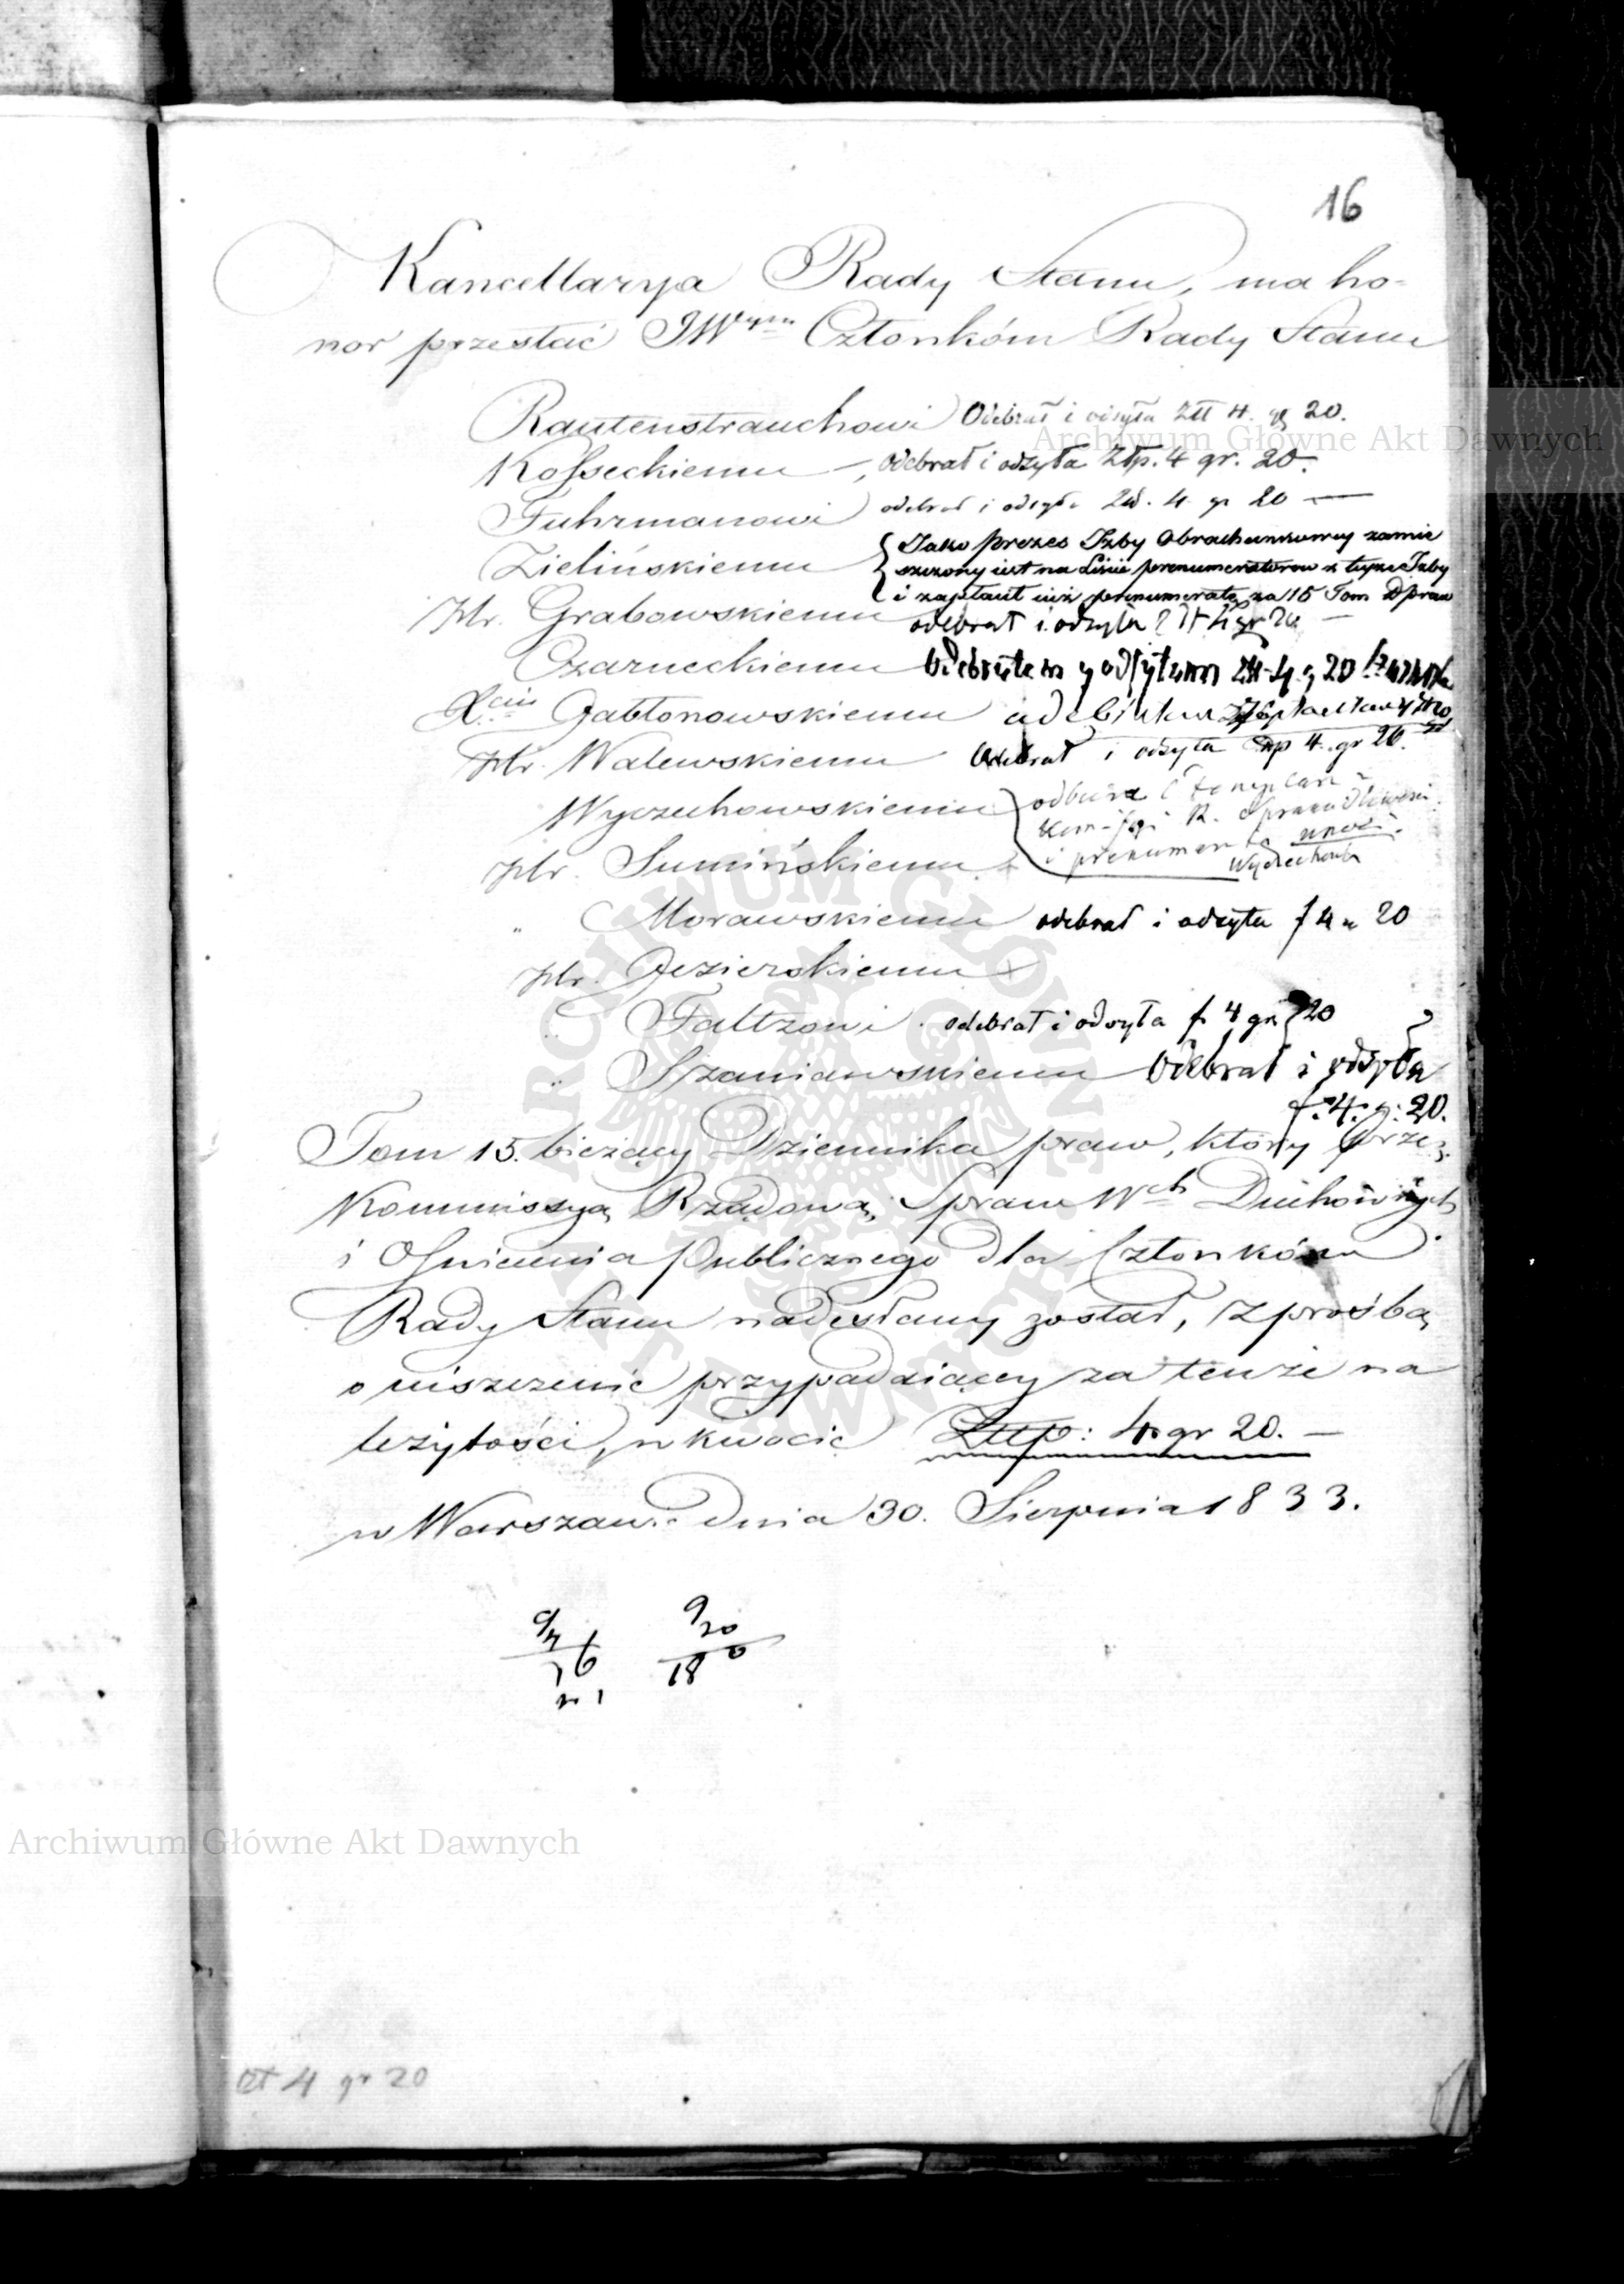 16
Kancellarya Rady Stanu, ma ho-
nor przesłać JWnym Członkóm Rady Stanu
Rautenstrauchowi Odebrał i odsyła Złł 4. gr 20.
Kosseckiemu —, Odebrał i odsyła Złp. 4 gr. 20.
Fuhrmanowi odebrał i odsyła Zł. 4. gr 20 —
Zielińskiemu Jako Prezes Izby Obrachunkowey zamie
szczony iest na Liście prenumeratorow z teyże Izby
i zapłacił iuż prenumeratę za 15 Tom D praw
Hr. Grabowskiemu odebrał i odsyła Zł 4 gr 20 —
Czarneckiemu Odebrałem y odsyłam Zł 4 g 20
Xciu Jabłonowskiemu
Hr. Walewskiemu Odebrał i odsyła Złp 4. gr 20.
Wyczechowskiemu odbierze Exemplarz
Kom-syi R. Sprawiedliwości
i prenumeratę
Wyczechowski
Hr. Sumińskiemu
" Morawskiemu odebrał i odsyła f 4 " 20
Hr. Jezierskiemu x
" Faltzowi odebrał i odsyła f. 4 gr 20
" Szaniawskiemu Odebrał i odsyła
f. 4. g: 20.
Tom 15. bieżący Dziennika praw, który przez
Kommissyą Rządową Spraw Wch Duchównych
i Oświecenia Publicznego dla Członków
Rady Stanu nadesłany został, z prośbą
o uiszczenie przypadaiącey za tenże na
leżytości, w kwocie Złłp: 4 gr 20. —
w Warszawie dnia 30. Sierpnia 1833.
9/4 9/20
36 180
Zł 4 gr 20
Archiwum Główne Akt Dawnych
Archiwum Główne Akt Dawnych
ARCHIWUM GŁÓWNE AKT DAWNYCH